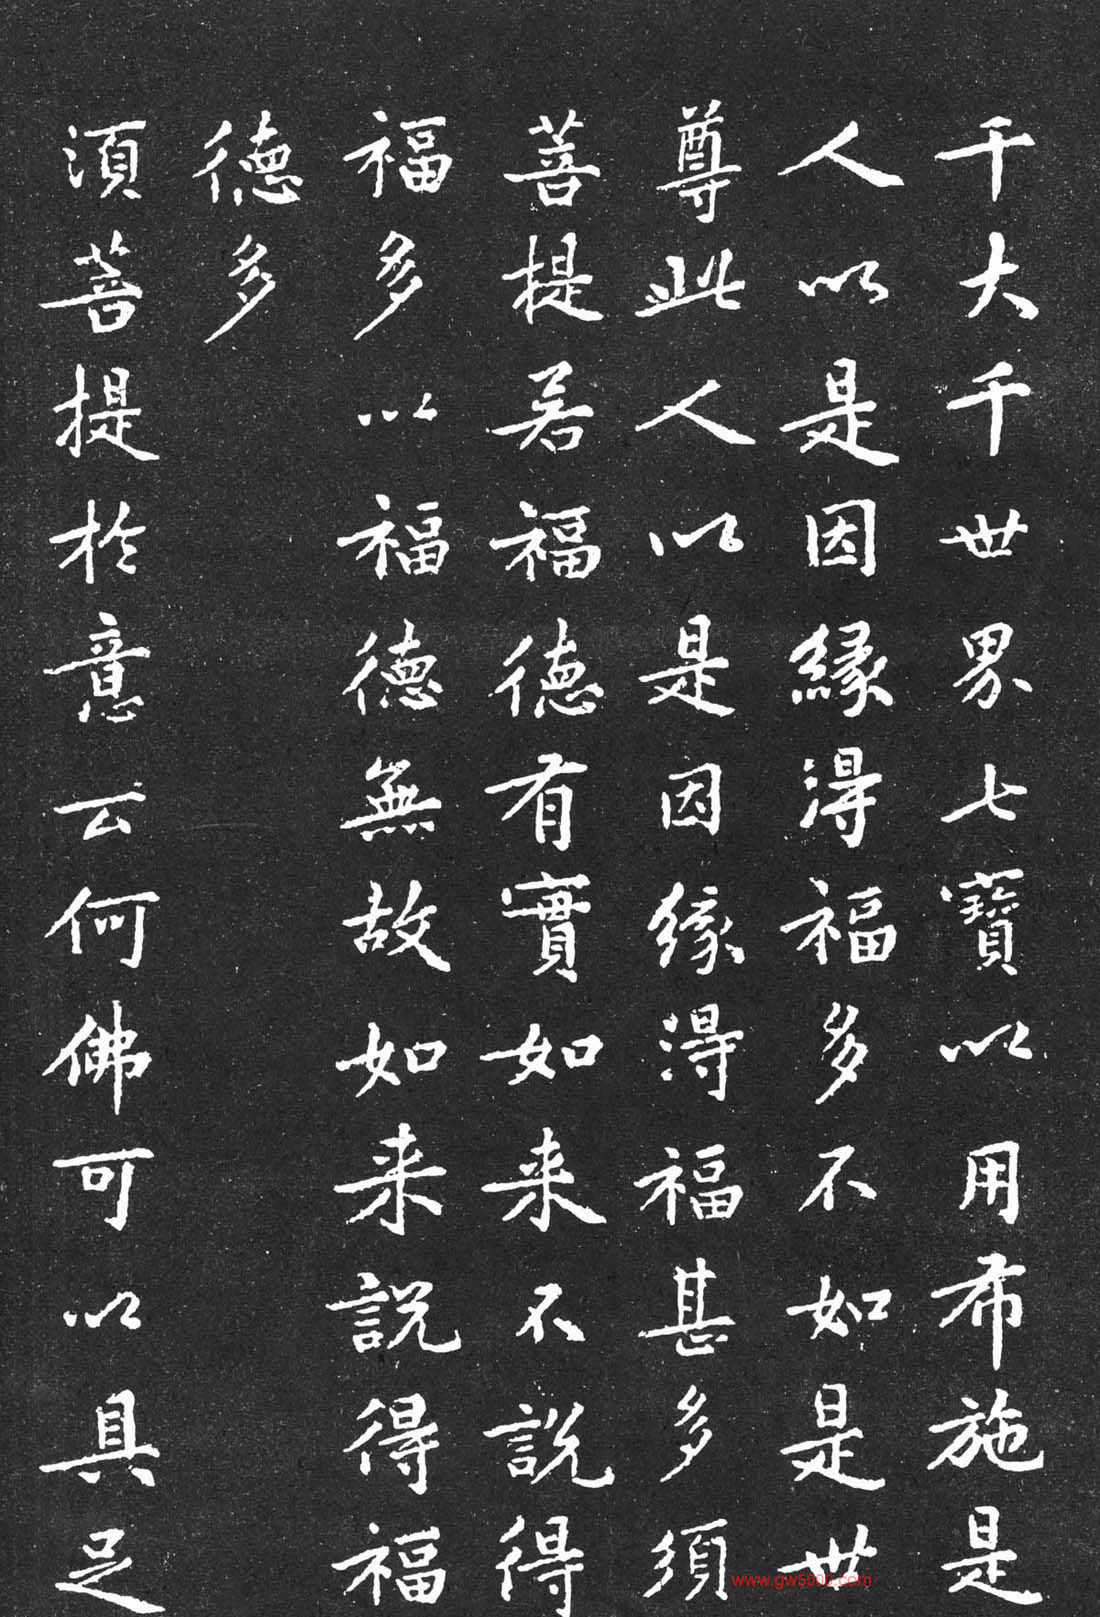 千大千世界七寶以用布施是
人以是因緣得福多不如是世
尊此人以是因緣得福甚多須
菩提若福德有實如来不說得
福多以福德無故如来說得福
德多
須菩提於意云何佛可以具足
www.gw5000.com